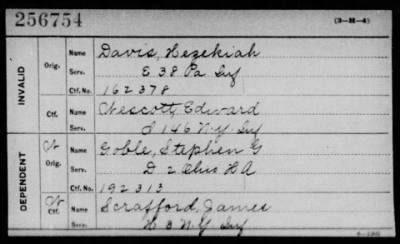 256754
(3-H-4)
INVALID
Orig.
Name Davis, Hezekiah
Serv. E 38 Pa Inf
Ctf. No. 162378
Ctf.
Name Wescott, Edward
Serv. I 146 N.Y. Inf
DEPENDENT
W
Orig.
Name Goble, Stephen G
Serv. D 2 Ohio H A
Ctf. No. 192313
W
Ctf.
Name Scrafford, James
Serv. H 3 N.Y Inf